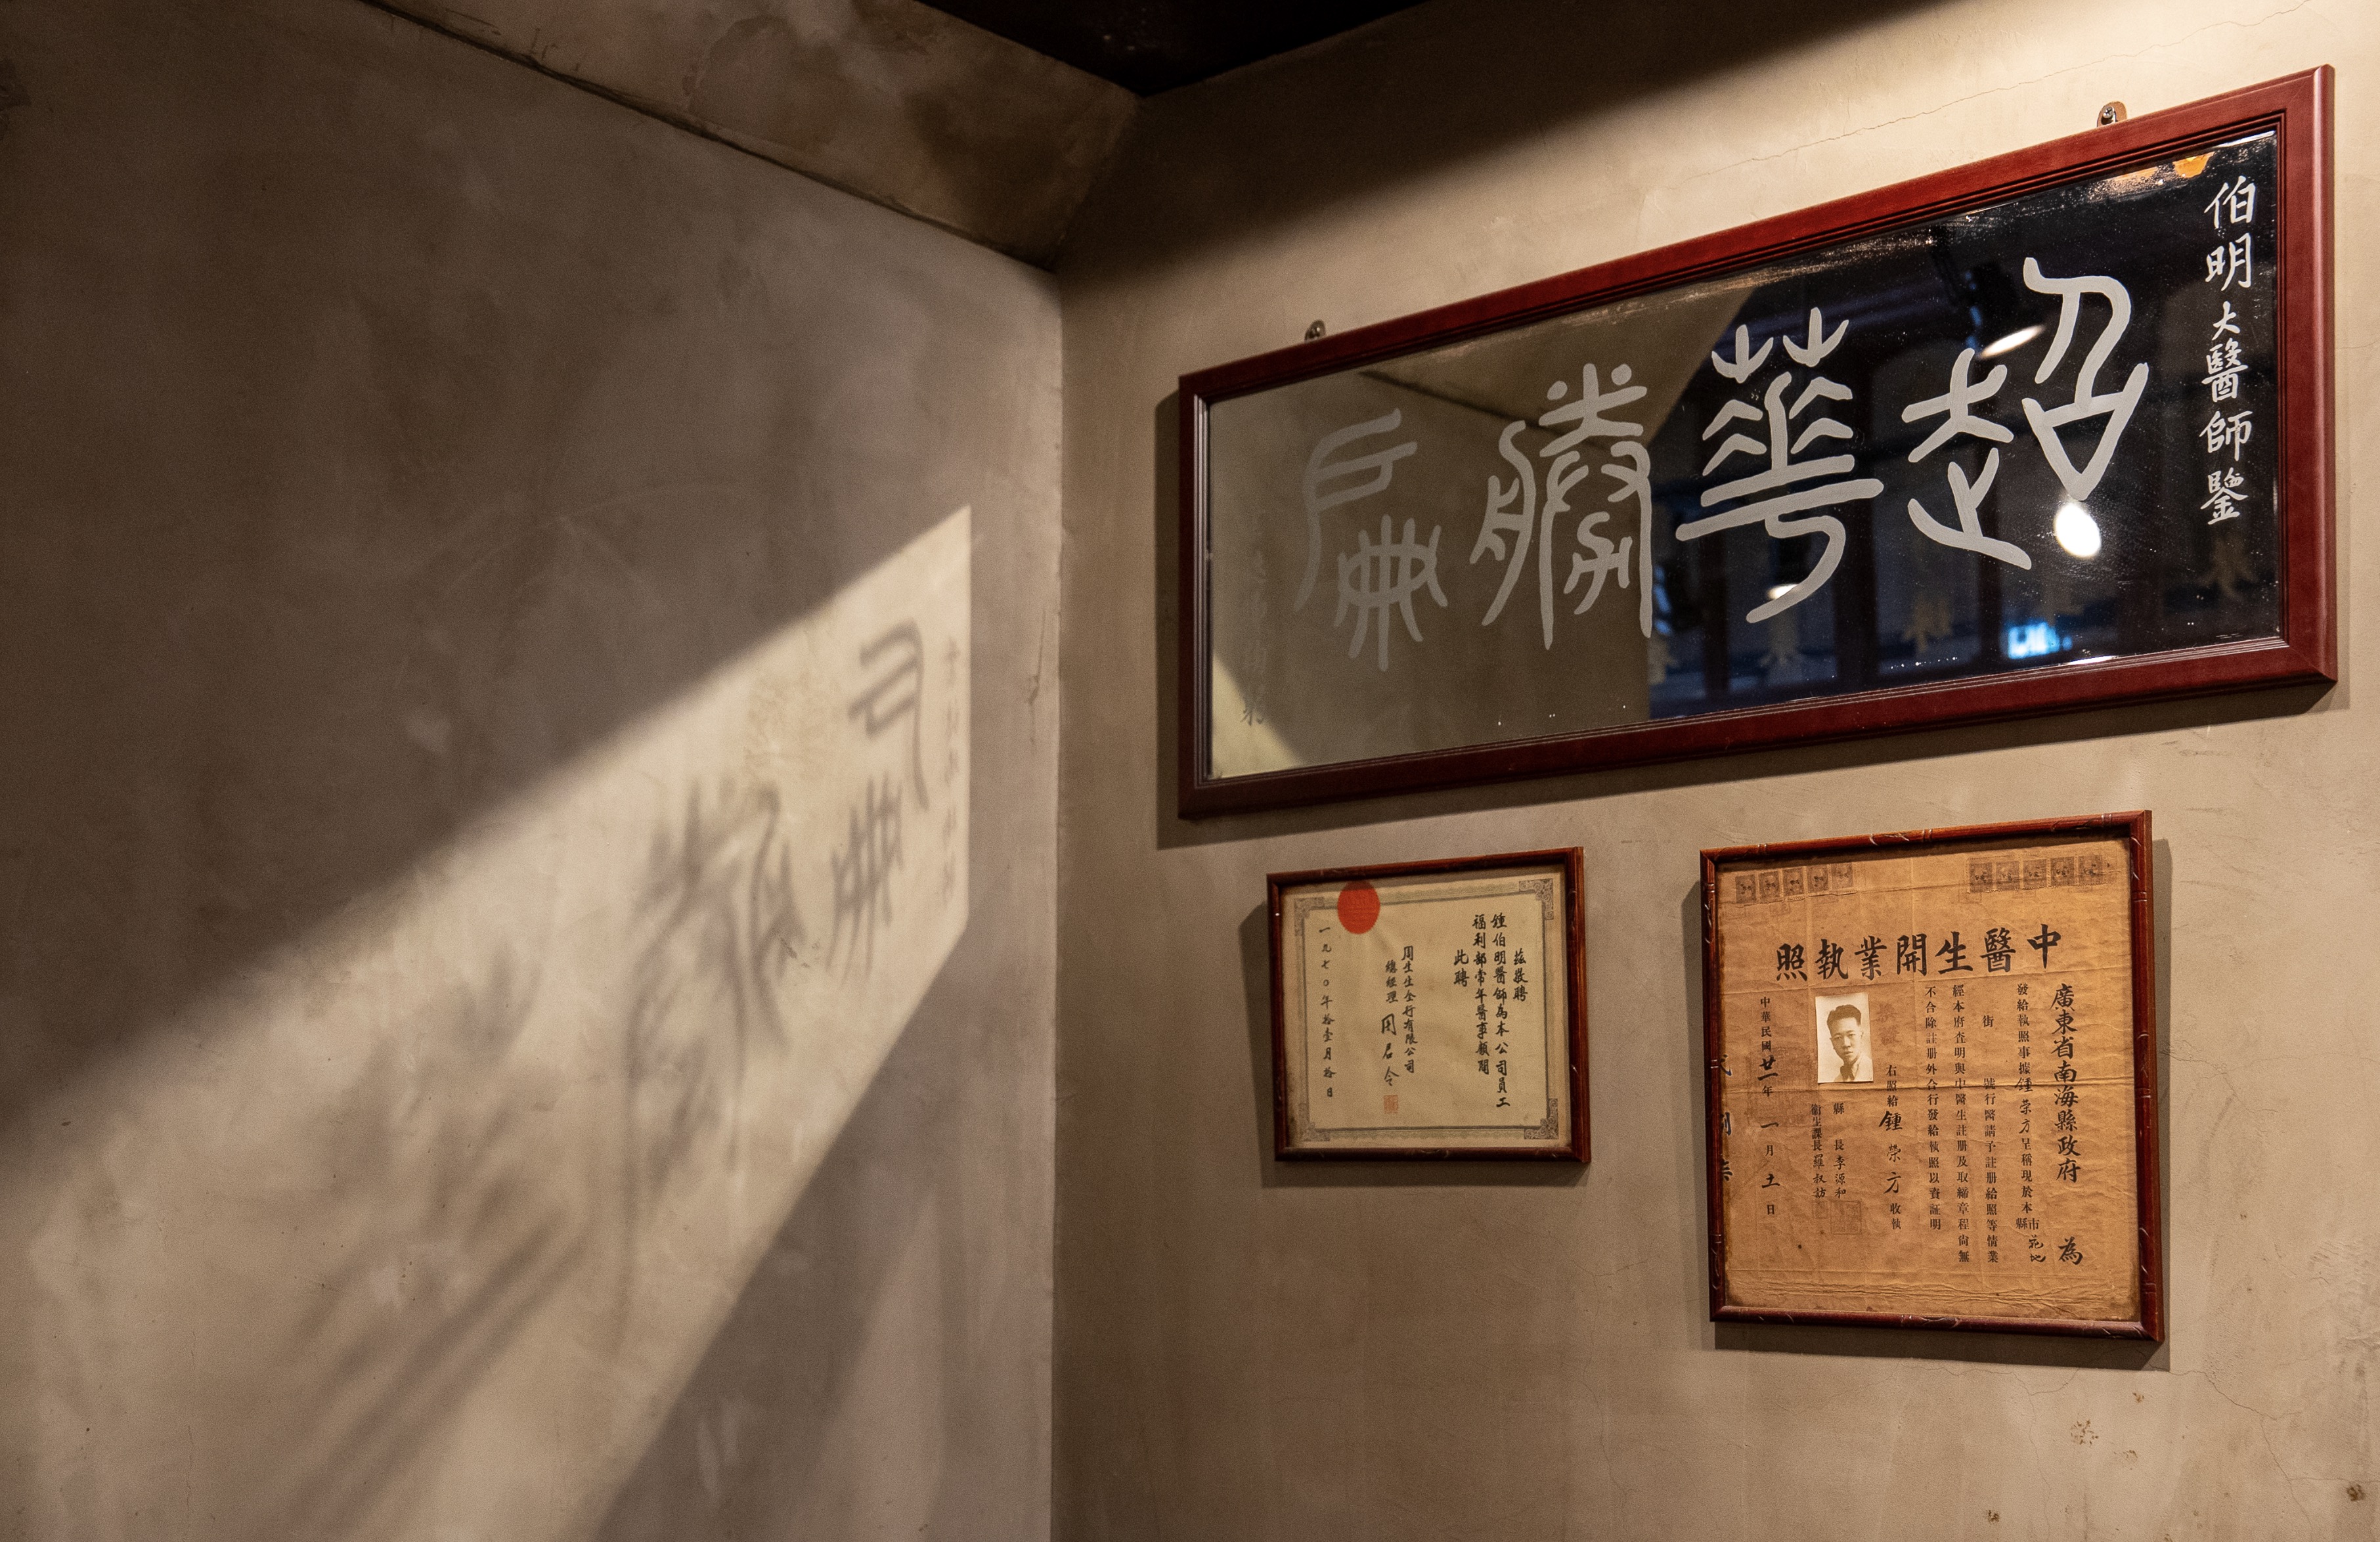 伯明大醫師鑒
超華勝扁
茲敬聘
鍾伯明醫師為本公司員工
福利部常年醫事顧問
此聘
周生生金行有限公司
總經理 周君令
一九七〇年拾壹月拾日
中醫生開業執照
廣東省南海縣政府 為
發給執照事據鍾榮方呈稱現於本
街 號行醫請予註册給照等情業
經本府查明與中醫生註册及取締章程尚無
不合除註册外合行發給執照以資証明
右照給鍾榮方收執
縣 長李源和
衞生課長羅叔訪
中華民國廿一年一月土日